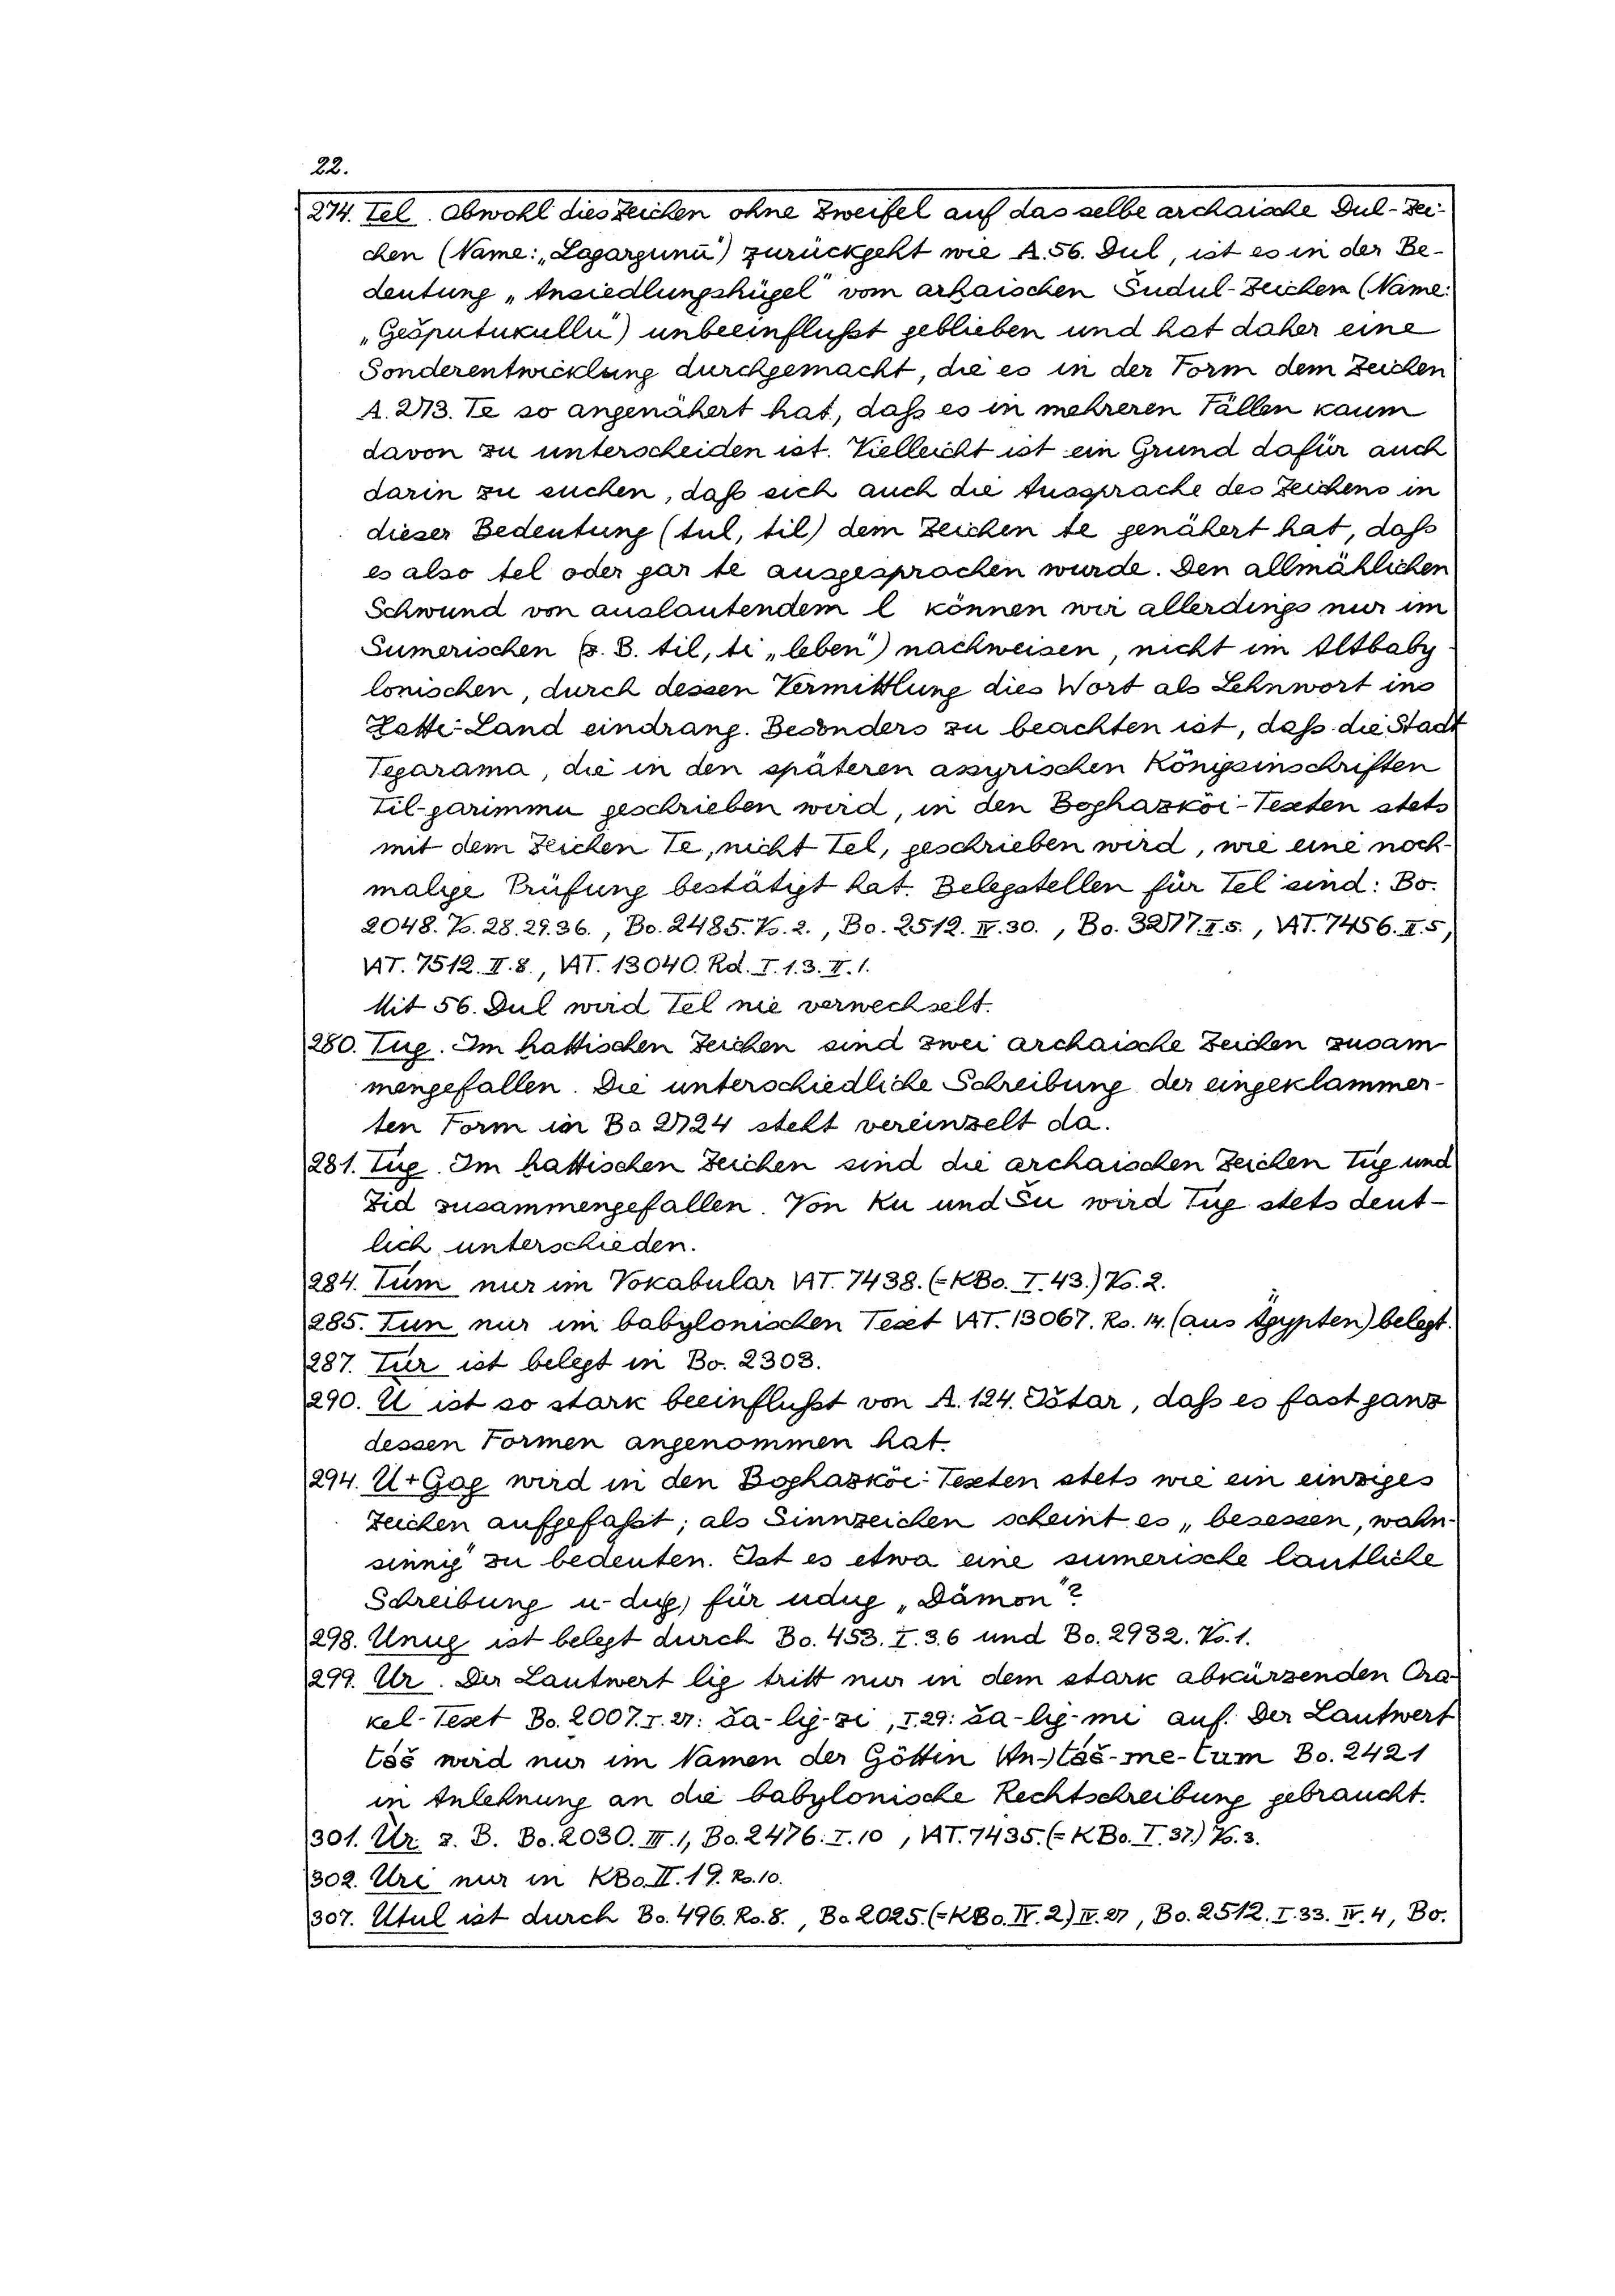 22.
274. Tel. Obwohl dies Zeichen ohne Zweifel auf dasselbe archaische Dul-Zei-
chen (Name: „Lagargunū") zurückgeht wie A. 56. Dul, ist es in der Be-
deutung „Ansiedlungshügel" vom arhaischen Šudul-Zeichen (Name:
„Gešputukullu") unbeeinflußt geblieben und hat daher eine
Sonderentwicklung durchgemacht, die es in der Form dem Zeichen
A. 273. Te so angenähert hat, daß es in mehreren Fällen kaum
davon zu unterscheiden ist. Vielleicht ist ein Grund dafür auch
darin zu suchen, daß sich auch die Aussprache des Zeichens in
dieser Bedeutung (tul, til) dem Zeichen te genähert hat, daß
es also tel oder gar te ausgesprochen wurde. Den allmählichen
Schwund von auslautendem l können wir allerdings nur im
Sumerischen (z. B. til, ti „leben") nachweisen, nicht im Altbaby-
lonischen, durch dessen Vermittlung dies Wort als Lehnwort ins
Hatti-Land eindrang. Besonders zu beachten ist, daß die Stadt
Tegarama, die in den späteren assyrischen Königsinschriften
Til-garimmu geschrieben wird, in den Boghazköi-Texten stets
mit dem Zeichen Te, nicht Tel, geschrieben wird, wie eine noch-
malige Prüfung bestätigt hat. Belegstellen für Tel sind: Bo.
2048. Vs. 28. 29. 36., Bo. 2485. Vs. 2., Bo. 2512. IV. 30., Bo. 3277. I. 5., VAT. 7456. II. 5,
VAT. 7512. II. 8., VAT. 13040. Rd. I. 1. 3. II. 1.
Mit 56. Dul wird Tel nie verwechselt.
280. Tug. Im hattischen Zeichen sind zwei archaische Zeichen zusam-
mengefallen. Die unterschiedliche Schreibung der eingeklammer-
ten Form in Bo 2724 steht vereinzelt da.
281. Túg. Im hattischen Zeichen sind die archaischen Zeichen Túg und
Zid zusammengefallen. Von Ku und Šu wird Túg stets deut-
lich unterschieden.
284. Túm nur im Vokabular VAT. 7438. (= KBo. I. 43.) Vs. 2.
285. Tun nur im babylonischen Text VAT. 13067. Rs. 14. (aus Ägypten) belegt.
287. Túr ist belegt in Bo. 2303.
290. U ist so stark beeinflußt von A. 124. Ištar, daß es fast ganz
dessen Formen angenommen hat.
294. U+Gag wird in den Boghazköi-Texten stets wie ein einziges
Zeichen aufgefaßt; als Sinnzeichen scheint es „besessen, wahn-
sinnig" zu bedeuten. Ist es etwa eine sumerische lautliche
Schreibung u-dug) für udug „Dämon"?
298. Unug ist belegt durch Bo. 453. I. 3. 6 und Bo. 2932. Vs. 1.
299. Ur. Der Lautwert lig tritt nur in dem stark abkürzenden Ora-
kel-Text Bo. 2007. I. 27: ša-lig-zi, I. 29: ša-lig-mi auf. Der Lautwert
táš wird nur im Namen der Göttin (An-)táš-me-tum Bo. 2421
in Anlehnung an die babylonische Rechtschreibung gebraucht.
301. Úr. z. B. Bo. 2030. III. 1, Bo. 2476. I. 10, VAT. 7435. (= KBo. I. 37.) Vs. 3.
302. Uri nur in KBo. II. 19. Rs. 10.
307. Utul ist durch Bo. 496. Rs. 8., Bo 2025. (= KBo. IV. 2) IV. 27, Bo. 2512. I. 33. IV. 4, Bo.